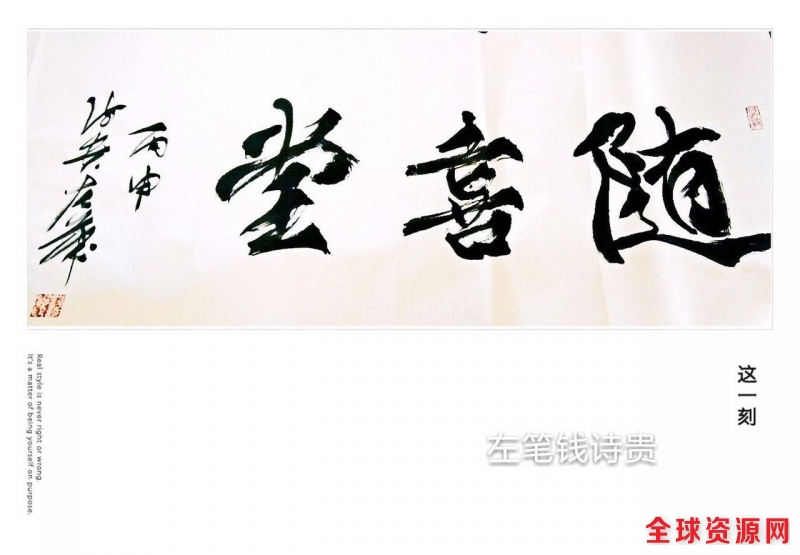 随喜堂
丙申
这一刻
左笔钱诗贵
Real style is never right or wrong.
It's a matter of being yourself on purpose.
全球资源网